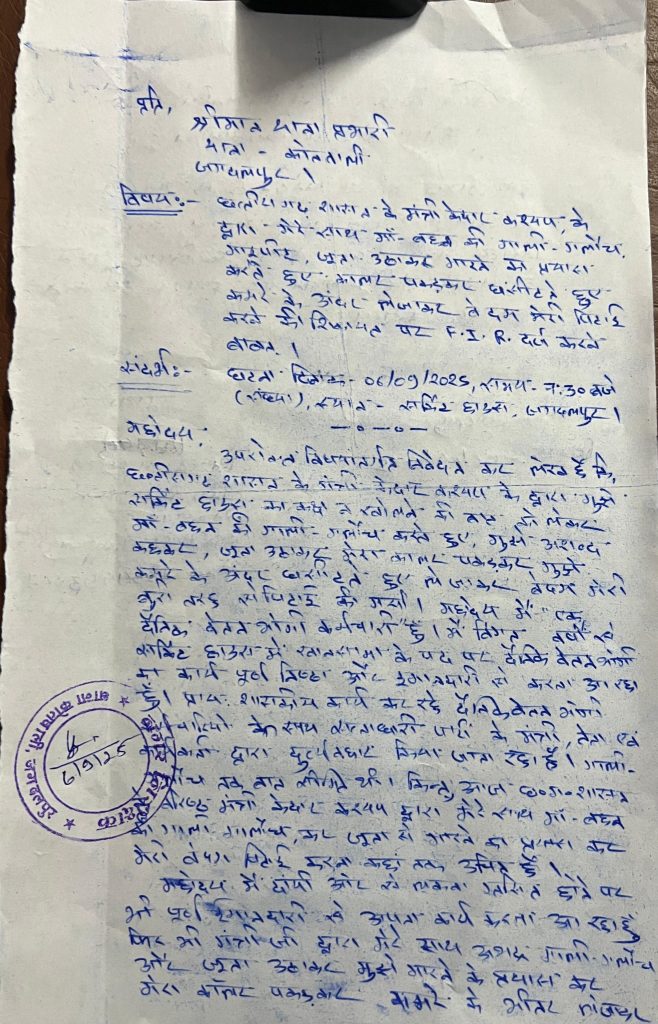 प्रति,
श्रीमान थाना प्रभारी
थाना - कोतवाली
जगदलपुर।
विषय:- छत्तीसगढ़ शासन के मंत्री केदार कश्यप, के
द्वारा मेरे साथ माँ-बहन की गाली-गलौंच,
मारपीट, जूता उठाकर मारने का प्रयास
करते हुए कालर पकड़कर घसीटते हुए
कमरे के अंदर लेजाकर बेदम मेरी पिटाई
करने की शिकायत पर F.I.R. दर्ज करने
बाबत।
संदर्भ:- घटना दिनांक- 06/09/2025, समय- 7:30 बजे
(संध्या), स्थान - सर्किट हाउस, जगदलपुर।
—०—०—
महोदय,
उपरोक्त विषयान्तर्गत निवेदन कर लेख है कि,
छत्तीसगढ़ शासन के मंत्री केदार कश्यप के द्वारा मुझे
सर्किट हाउस का कक्ष न खोलने की बात को लेकर
माँ-बहन की गाली-गलौंच करते हुए, मुझे अपशब्द
कहकर, जूता उठाकर मेरा कालर पकड़कर मुझे
कमरे के अंदर घसीटते हुए ले जाकर बेदम मेरी
बुरी तरह से पिटाई की गयी। महोदय मैं एक
दैनिक वेतन भोगी कर्मचारी हूँ। मैं विगत वर्षों से
सर्किट हाउस में खानसामा के पद पर दैनिक वेतन भोगी
का कार्य पूर्ण निष्ठा और ईमानदारी से करता आ रहा
हूँ। प्रायः शासकीय कार्य कर रहे दैनिक वेतन भोगी
के साथ सत्ताधारी पार्टी के मंत्री, नेता एवं
द्वारा दुर्व्यवहार किया जाता रहा है। गाली-
तक बात सीमित थी। किन्तु आज छ०ग० शासन
मंत्री केदार कश्यप द्वारा मेरे साथ माँ-बहन
की गाली गलौंच, कर जूता से मारने का प्रयास कर
मेरी बेदम पिटाई करना कहां तक उचित है।
महोदय मैं दांयी ओर से लकवा ग्रसित होने पर
भी पूर्ण ईमानदारी से अपना कार्य करता आ रहा हूँ
फिर भी मंत्री जी द्वारा मेरे साथ अभद्र गाली-गलौंच
और जूता उठाकर मुझे मारने के प्रयास कर
मेरा कॉलर पकड़कर कमरे के भीतर लेजाकर
थाना कोतवाली,
6/9/25